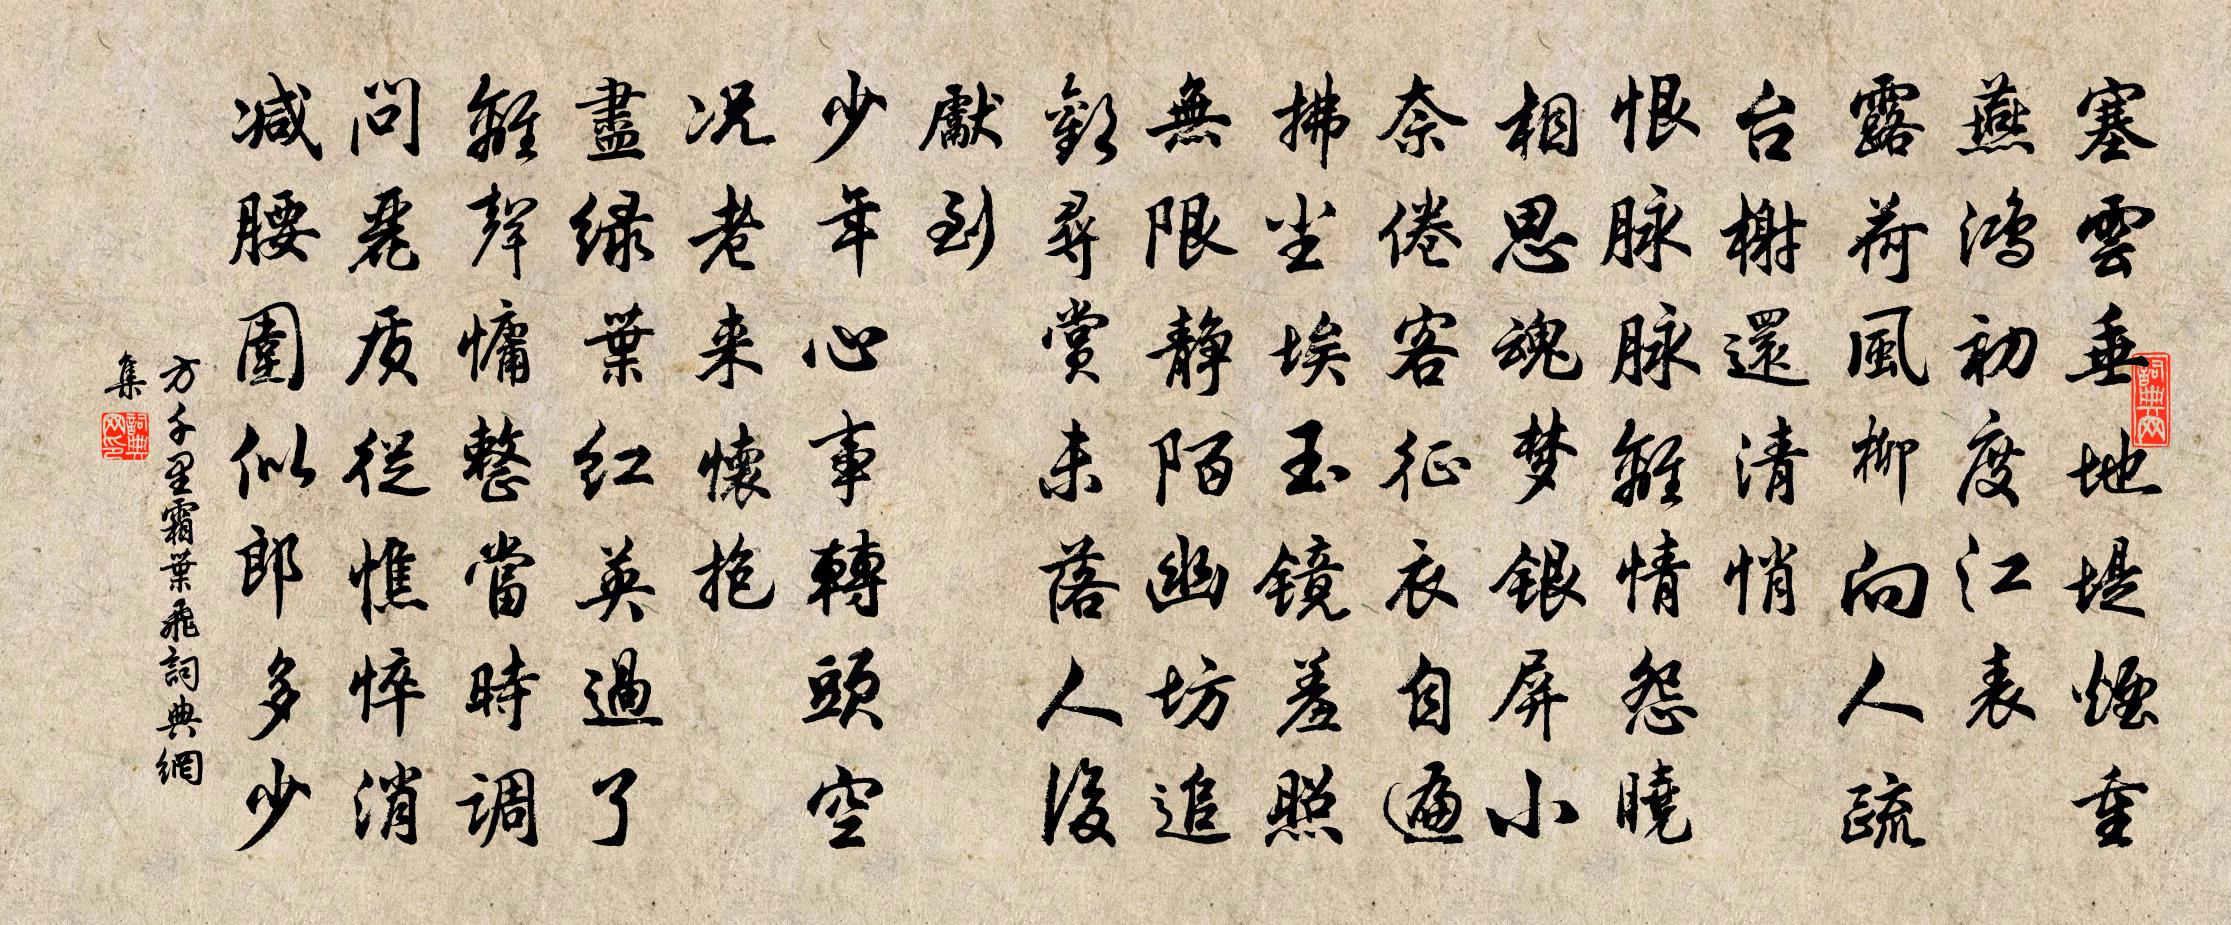 塞雲垂地堤煙重
燕鴻初度江表
露荷風柳向人疏
台榭還清悄
恨脉脉離情怨曉
相思魂梦銀屏小
奈倦客征衣自遍
拂尘埃玉鏡羞照
無限静陌幽坊追
歡尋賞未落人後
獻到
少年心事轉頭空
况老来懷抱
盡緑葉红英過了
離聲慵整當時调
問麗质從憔悴消
减腰圍似郎多少
方千里霜葉飛詞典網
集
詞典网
詞典网印